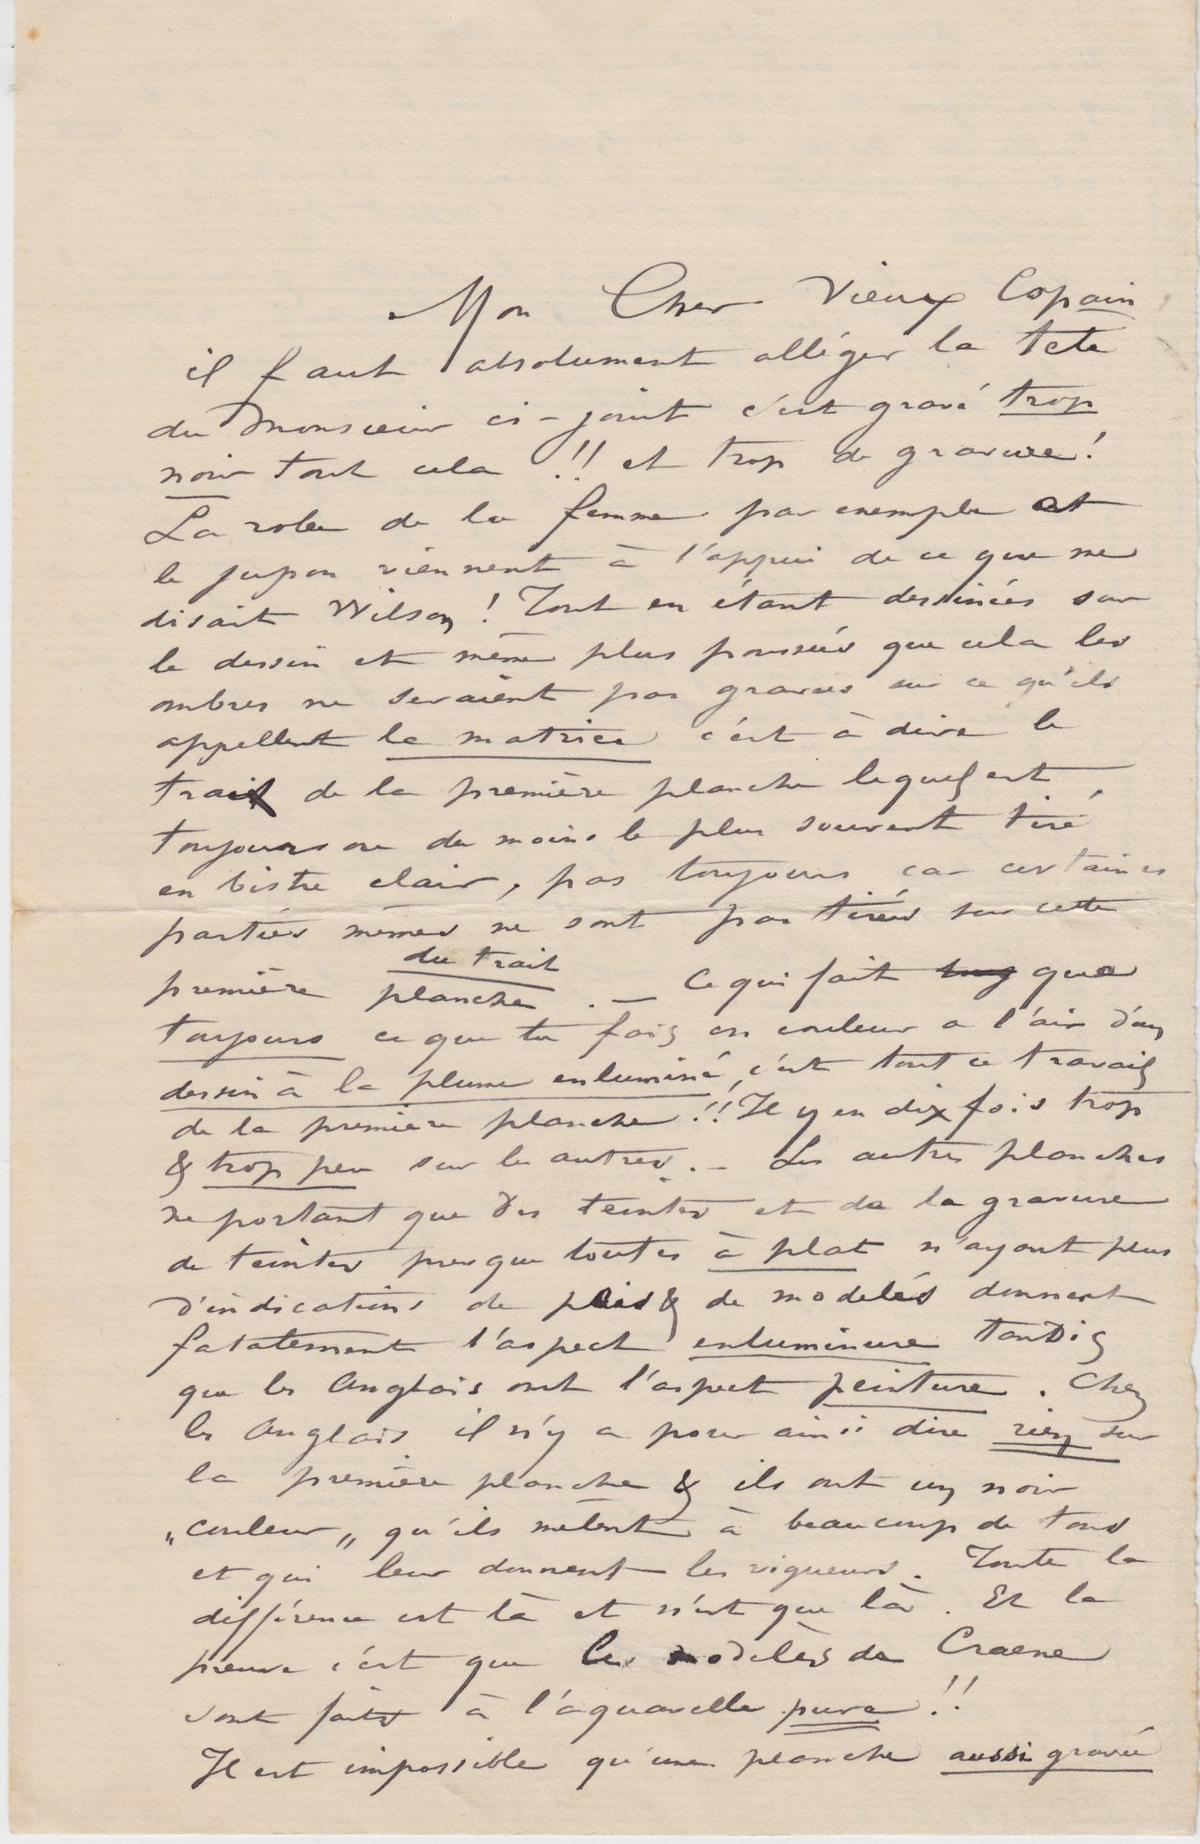 Mon Cher Vieux Copain
il faut absolument alléger la tete
du Monsieur ci-joint c'est gravé trop
noir tout cela !!! et trop de gravure !
La robe de la femme par exemple et
le jupon viennent à l'appui de ce que me
disait Wilson ! Tout en étant dessinées sur
le dessin et même plus poussées que cela les
ombres ne seraient pas gravées sur ce qu'ils
appellent la matrice c'est à dire le
trait de la première planche lequel est
toujours ou du moins le plus souvent tiré
en bistre clair, pas toujours car certaines
parties mêmes ne sont pas tirées sur cette
du trait
première planche . — Ce qui fait que
toujours ce que tu fais en couleur a l'air d'un
dessin à la plume enluminé, c'est tout ce travail
de la première planche !!! Il y en dix fois trop
& trop peu sur les autres. — Les autres planches
ne portant que des teintes et de la gravure
de teintes presque toutes à plat n'ayant plus
d'indications de plis & de modelés donnent
fatalement l'aspect enluminure tandis
que les Anglais ont l'aspect peinture . Chez
les Anglais il n'y a pour ainsi dire rien sur
la première planche & ils ont un noir
„couleur„ qu'ils mêlent à beaucoup de tons
et qui leur donnent les vigueurs. Toute la
différence est là et n'est que là. Et la
preuve c'est que les modèles de Craene
sont faits à l'aquarelle pure !!
Il est impossible qu'une planche aussi gravée